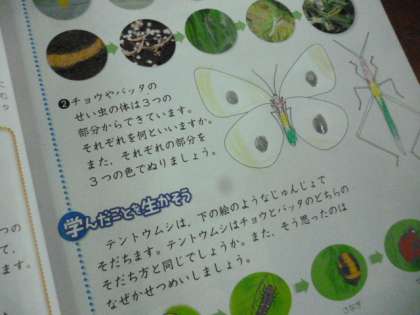 ❷チョウやバッタの
せい虫の体は3つの
部分からできています。
それぞれを何といいますか。
また、それぞれの部分を
3つの色でぬりましょう。
学んだことを生かそう
テントウムシは、下の絵のようなじゅんじょで
そだちます。テントウムシはチョウとバッタのどちらの
そだち方と同じでしょうか。また、そう思ったのは
なぜかせつめいしましょう。
さなぎ